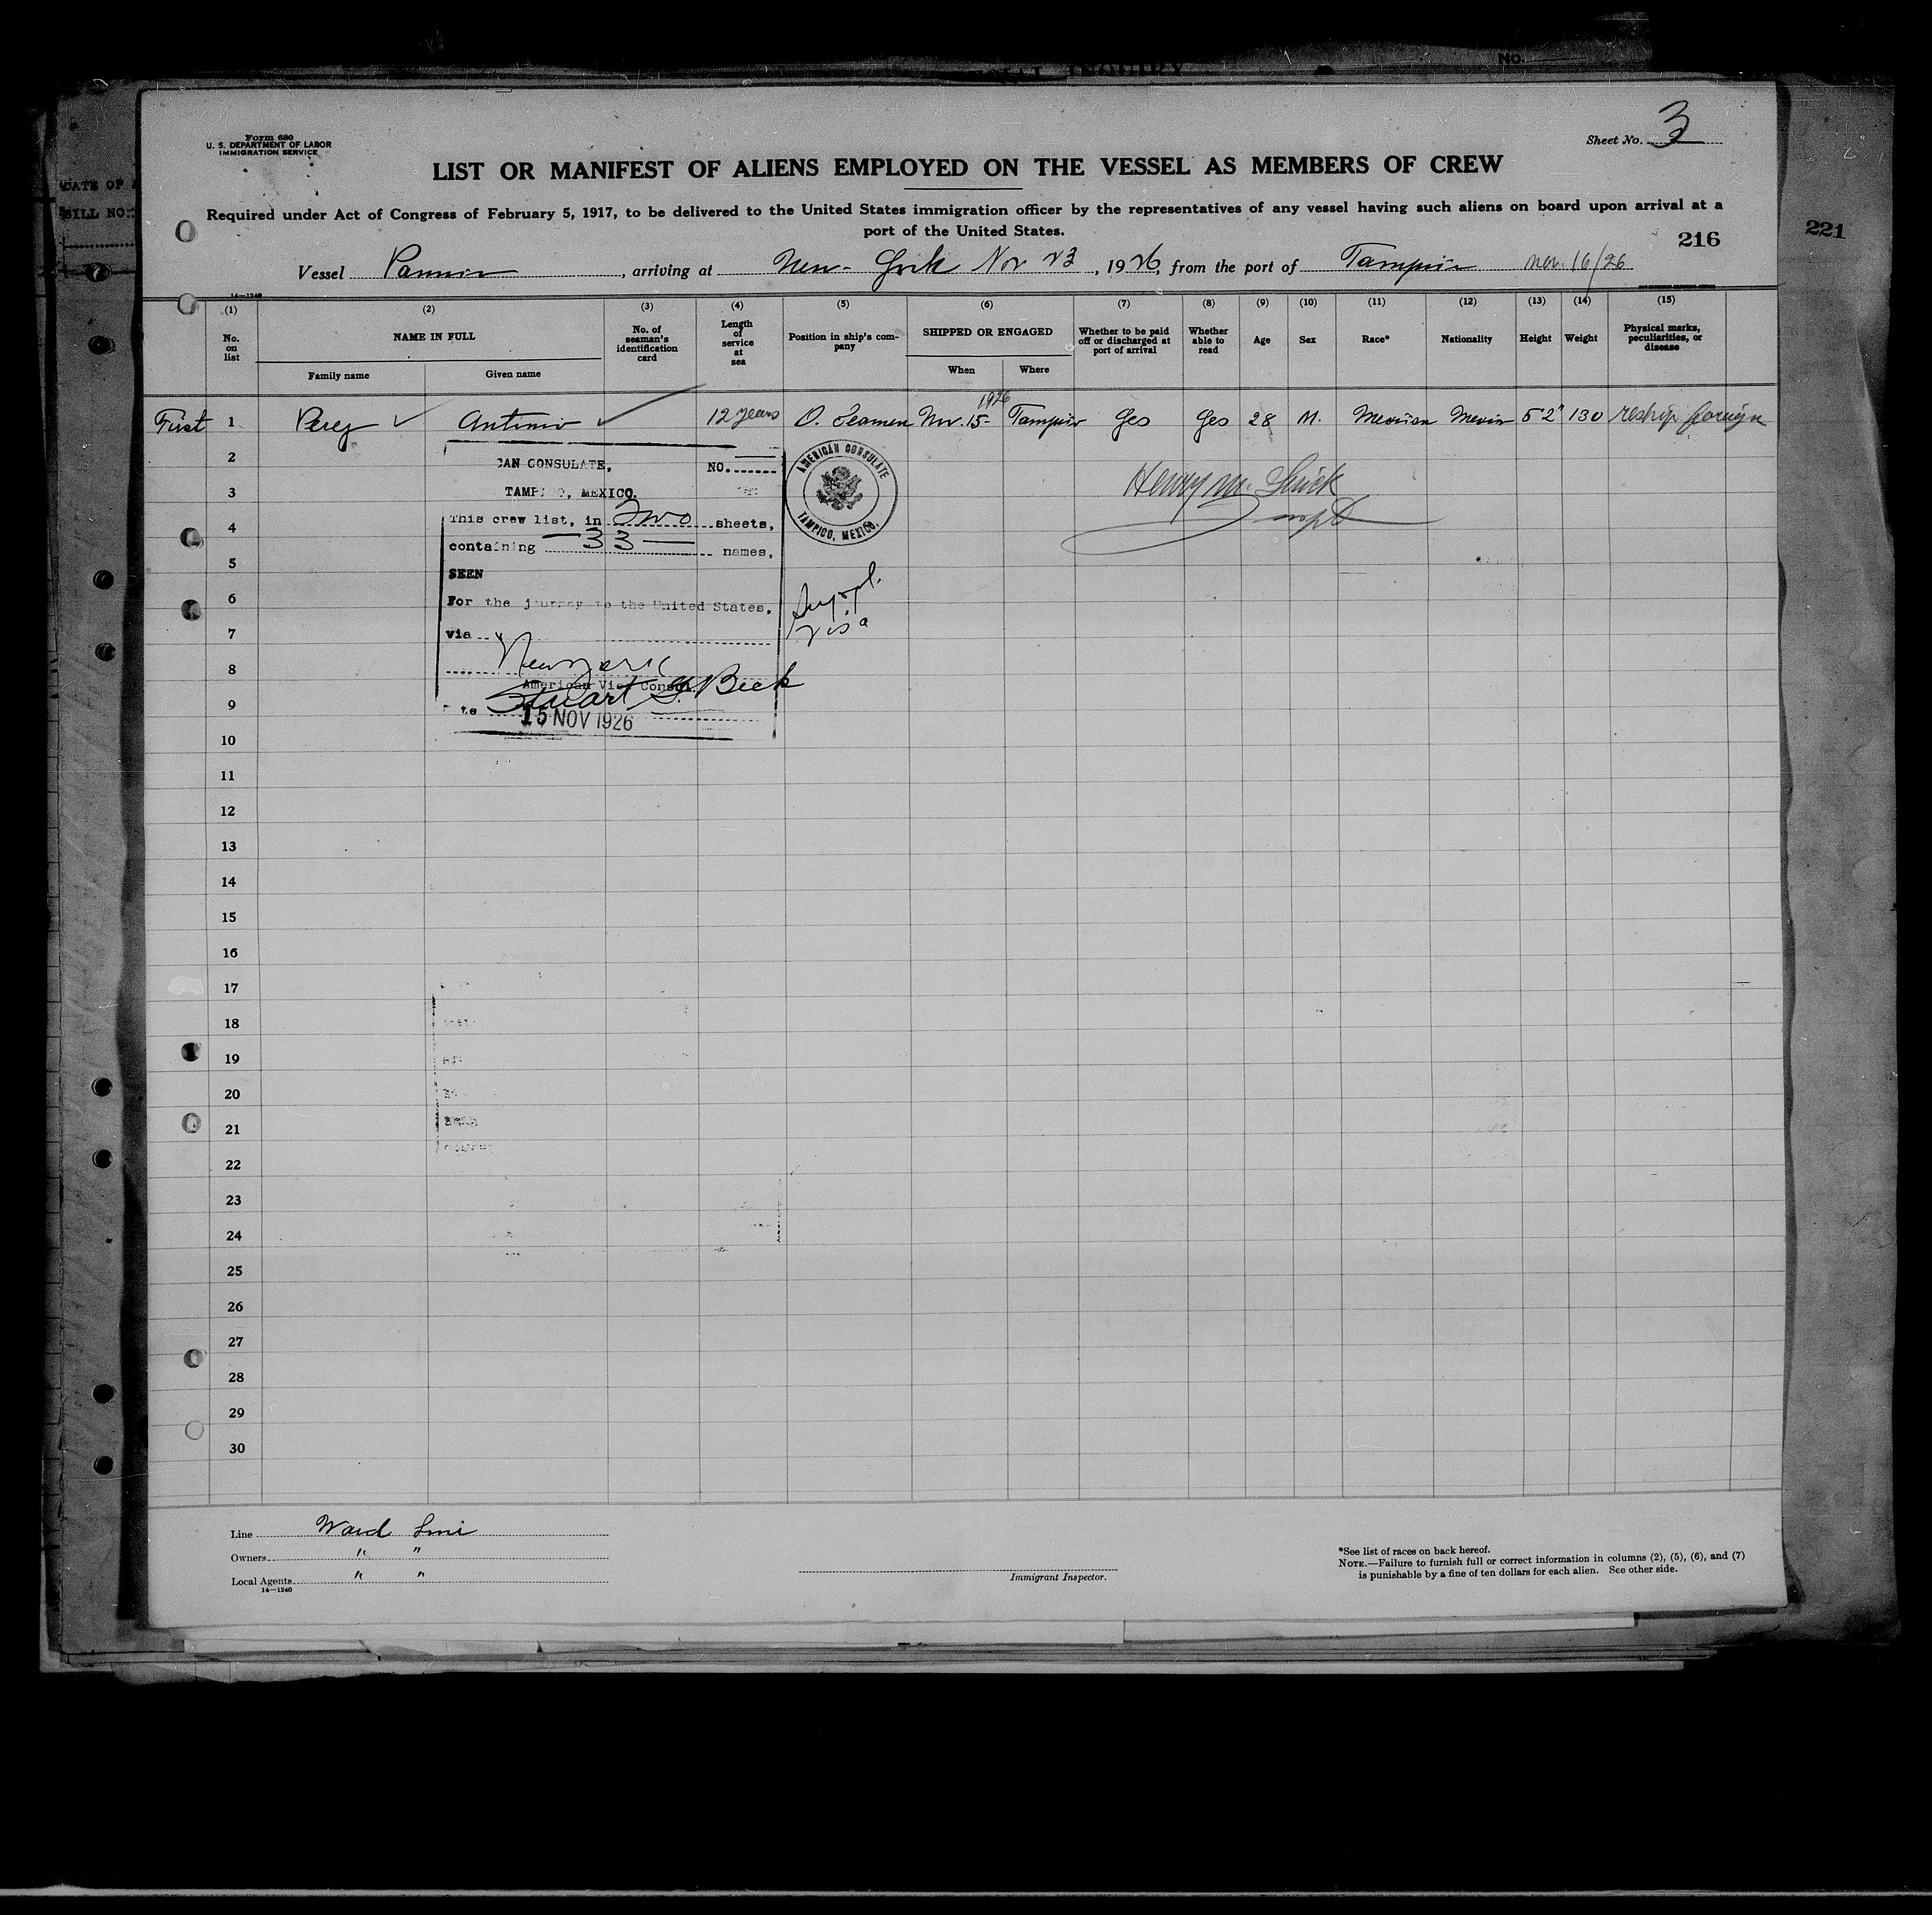 NO.
DATE OF
BILL NO.
Form 680
U. S. DEPARTMENT OF LABOR
IMMIGRATION SERVICE
Sheet No. 3
LIST OR MANIFEST OF ALIENS EMPLOYED ON THE VESSEL AS MEMBERS OF CREW
Required under Act of Congress of February 5, 1917, to be delivered to the United States immigration officer by the representatives of any vessel having such aliens on board upon arrival at a
port of the United States.
216
221
Vessel, arriving at New-York Nov 23, 1926, from the port of Tampico Nov. 16/26
14—1240
(1) (2) (3) (4) (5) (6) (7) (8) (9) (10) (11) (12) (13) (14) (15)
No. on list
NAME IN FULL
Family name
Given name
No. of seaman's identification card
Length of service at sea
Position in ship's company
SHIPPED OR ENGAGED
When
Where
Whether to be paid off or discharged at port of arrival
Whether able to read
Age
Sex
Race*
Nationality
Height
Weight
Physical marks, peculiarities, or disease
1926
First 1 Perez Antonio 12 years O. Seamen Nov. 15- Tampico Yes Yes 28 M. Mexican Mexico 5'2" 130 reship foreign
2
3
4
5
6
7
8
9
10
11
12
13
14
15
16
17
18
19
20
21
22
23
24
25
26
27
28
29
30
CAN CONSULATE,
NO.
TAMPICO, MEXICO.
This crew list, in Two sheets,
containing —33— names,
SEEN
For the journey to the United States,
via
New York
American Vice Consul
Stuart G. Beck
15 NOV 1926
AMERICAN CONSULATE
TAMPICO, MEXICO.
Suppl.
visa
Henry M.
Line Ward Line
Owners " "
Local Agents " "
14—1240
Immigrant Inspector.
*See list of races on back hereof.
NOTE.—Failure to furnish full or correct information in columns (2), (5), (6), and (7)
is punishable by a fine of ten dollars for each alien. See other side.